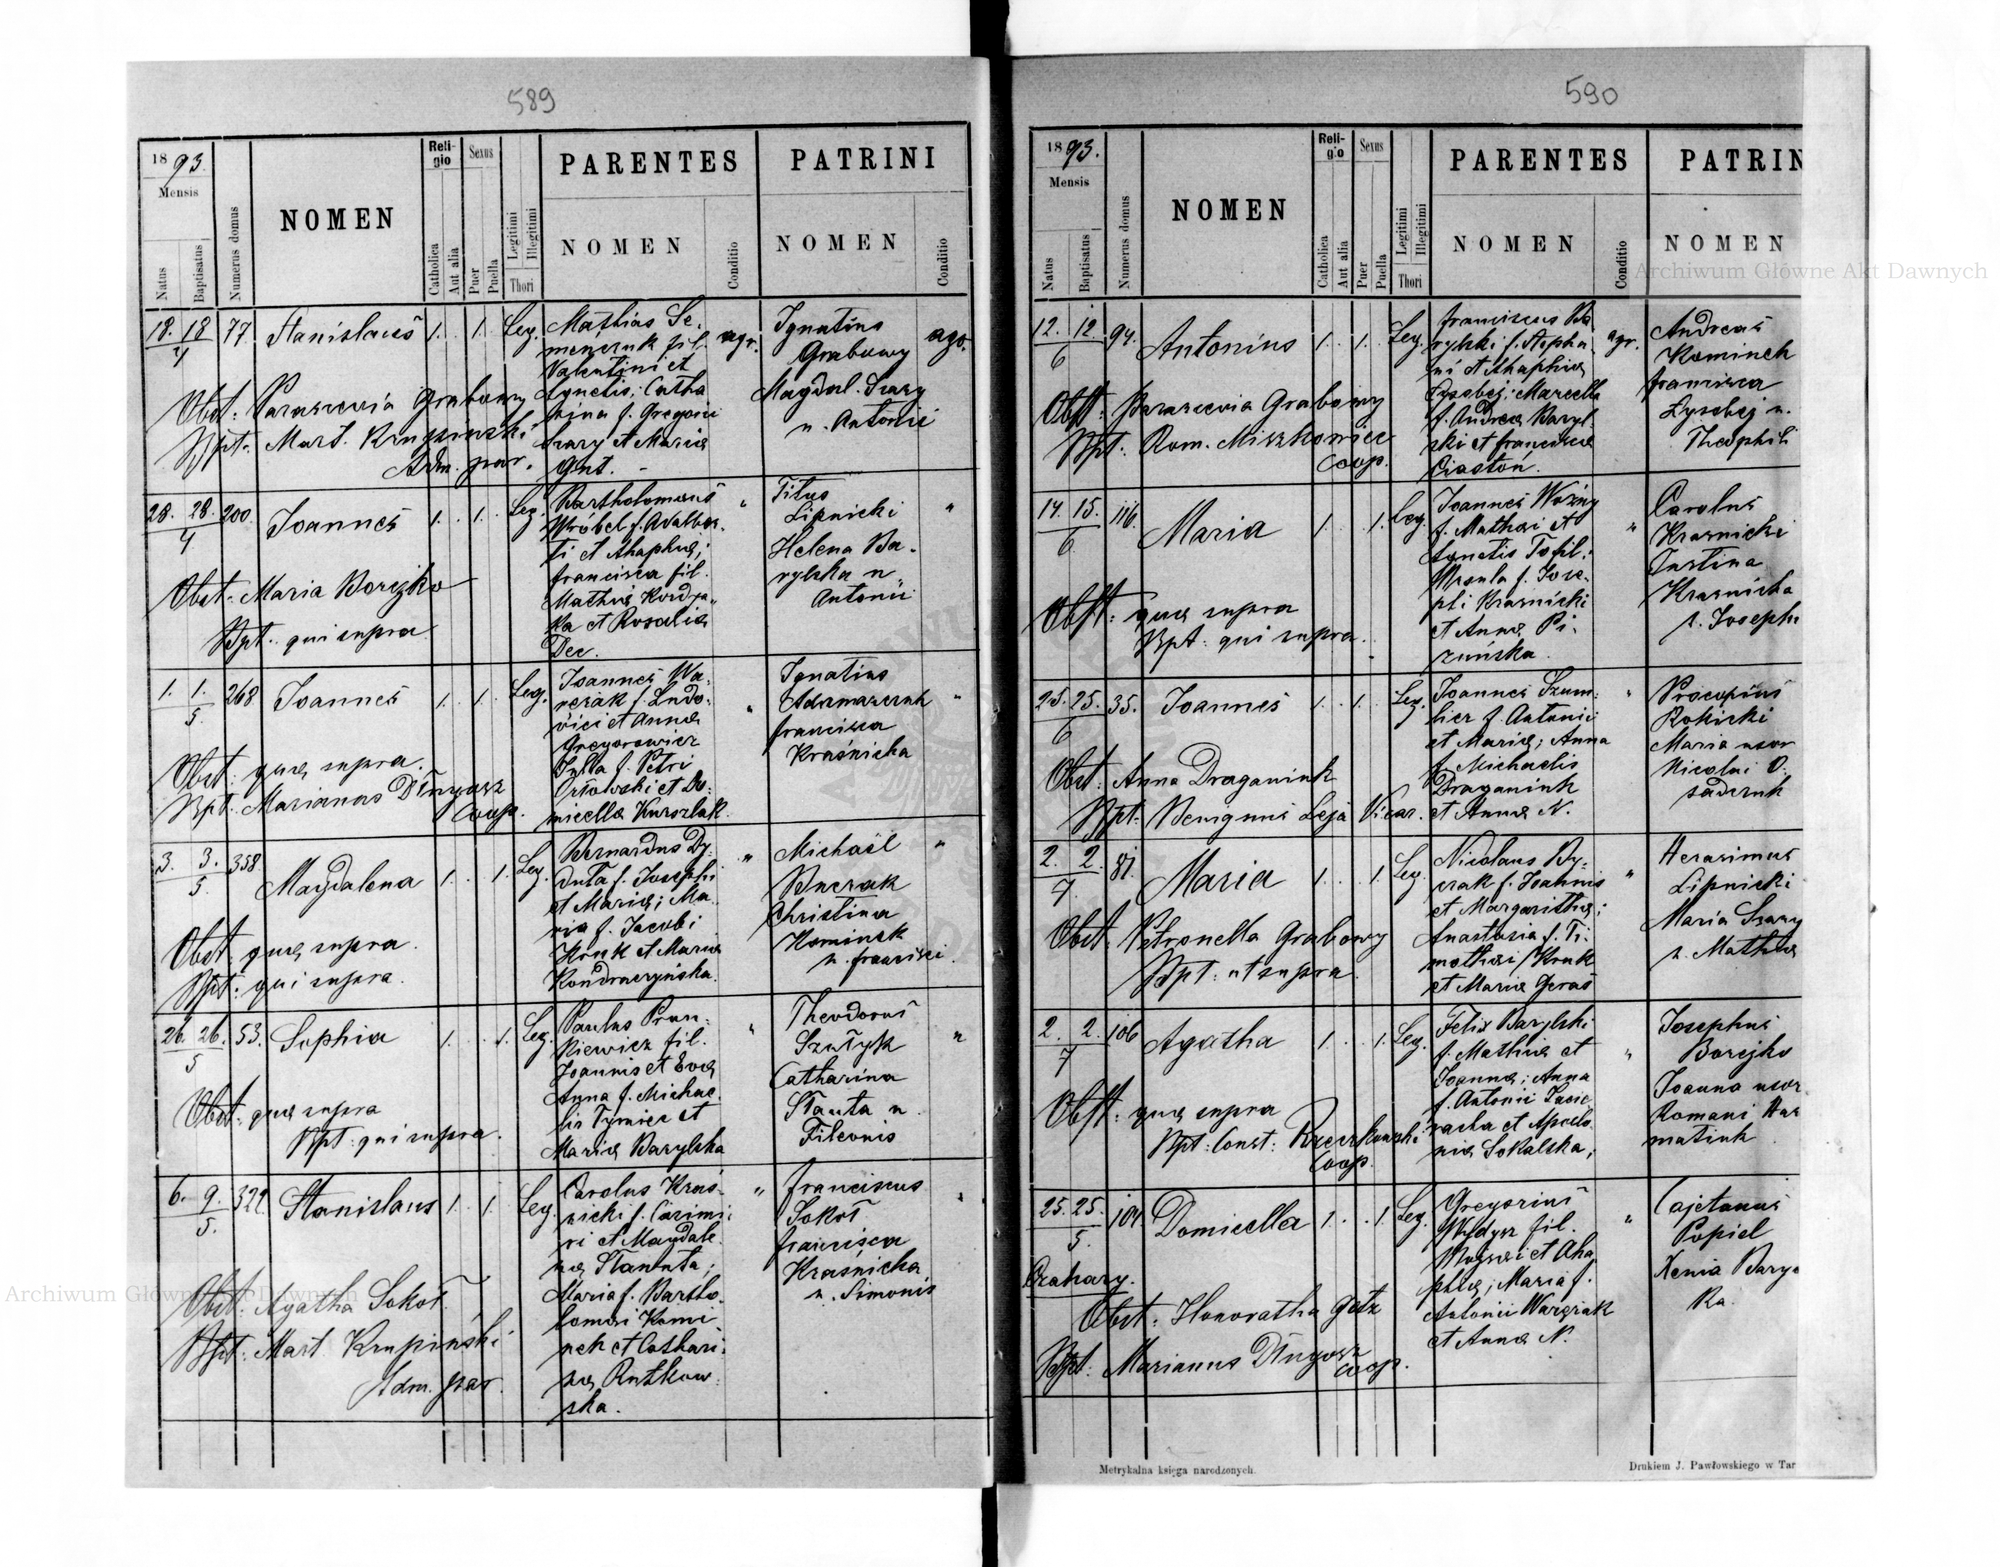 589
1893.
Mensis
Natus
Baptisatus
Numerus domus
NOMEN
Religio
Catholica
Aut alia
Sexus
Puer
Puella
Legitimi
Illegitimi
Thori
PARENTES
NOMEN
Conditio
PATRINI
NOMEN
Conditio
18. 18 77. Stanislaus 1. 1. Leg.
4
Obst: Parascevia Grabowy
Bpt. Mart. Krupiński
Adm. par.
Mathias Se-
menczuk fil.
Valentini et
Agnetis; Catha
rina f. Gregorii
Szary et Mariæ
Gut. -
agr.
Ignatius
Grabowy
Magdal. Szary
u. Antonii
agr.
28. 28. 200. Joannes 1. 1. Leg.
4
Obst: Maria Borejko
Bpt. qui supra.
Bartholomæus
Wróbel f. Adalber-
ti et Ahaphiæ;
Francisca fil.
Mathiæ
ka et Rosaliæ
Dec.
"
Titus
Lipnicki
Helena Ba-
rylska u.
Antonii
"
1. 1. 268 Joannes 1. 1. Leg.
5.
Obst: quæ supra.
Bpt. Marianus Długosz
Coop.
Joannes Wa-
rczak f. Ludo-
vici et Annæ
Gregorowicz
Julla f. Petri
Orłowski et Do-
micellæ Kurszlak.
"
Ignatius
Adamaszczuk
Francisca
Kraśnicka
"
3. 3. 358 Magdalena 1. 1. Leg.
5.
Obst: quæ supra.
Bpt: qui supra.
Bernardus Dy-
duła f. Josephi
et Mariæ; Ma-
ria f. Jacobi
Kruk et Mariæ
Kondraczyńska.
"
Michaël
Buczak
Christina
Kominek
u. Francisci.
"
26. 26. 53. Sophia 1. 1. Leg.
5
Obst: quæ supra
Bpt: qui supra.
Paulus Prun-
kiewicz fil.
Joannis et Evæ
Anna f. Michae-
lis Tymicz et
Mariæ Barylska
"
Theodorus
Szałyk
Catharina
Stauta u.
Fileonis
"
6. 9. 322 Stanislaus 1. 1. Leg.
5.
Obst: Agatha Sokoł
Bpt: Mart. Krupiński
Adm. par.
Carolus Kras-
nicki f. Casimi-
ri et Magdale-
næ Stanuta;
Maria f. Bartho-
lomæi Komi-
nek et Cathari-
næ Rutkow-
ska.
"
Franciscus
Sokoł
Francisca
Kraśnicka
u. Simonis
"
590
1893.
Mensis
Natus
Baptisatus
Numerus domus
NOMEN
Religio
Catholica
Aut alia
Sexus
Puer
Puella
Legitimi
Illegitimi
Thori
PARENTES
NOMEN
Conditio
PATRIN
NOMEN
Archiwum Główne Akt Dawnych
12. 12. 94. Antonius 1. 1. Leg.
6
Obst: Parascevia Grabowy
Bpt: Rom. Miszkowicz
Coop.
Franciscus Ba
rylski f. Stepha-
ni et Ahaphiæ
Łysobej; Marcella
f. Andreæ Baryl-
ski et Franciscæ
Ciastoń.
agr.
Andreas
Kominek
Francisca
Łysobej u.
Theophili
14. 15. 116. Maria 1. 1. Leg.
6
Obst: quæ supra
Bpt: qui supra.
Joannes Woźny
f. Mathæi et
Agnetis Tofil;
Ursula f. Jose-
phi Krasnicki
et Annæ Pi-
zuńska.
"
Carolus
Krasnicki
Justina
Krasnicka
s. Josephi
25. 25. 35. Joannes 1. 1. Leg.
6
Obst: Anna Draganiuk
Bpt. Benignus Leja Vicar.
Joannes Szum-
licz f. Antonii
et Mariæ; Anna
f. Michaelis
Draganiuk
et Annæ N.
"
Procopius
Rokicki
Maria uxor
Nicolai O-
saderuk
2. 2. 81. Maria 1. 1. Leg.
7
Obst: Petronella Grabowy
Bpt: ut supra.
Nicolaus By-
czak f. Joannis
et Margarithæ;
Anastasia f. Ti-
mothæi Kruk
et Mariæ Geras
"
Herasimus
Lipnicki
Maria Szary
s. Mathiæ
2. 2. 106 Agatha 1. 1. Leg.
7
Obst: quæ supra
Bpt: Const: Rzeczkowski
Coop.
Felix Barylski
f. Mathiæ et
Joannæ; Anna
f. Antonii
et Apollo
niæ Sokalska,
"
Josephus
Borejko
Joanna uxor
Romani Har
matiuk
25. 25. 104 Domicella 1. 1. Leg.
5.
Czahary.
Obst: Honoratha Götz
Bpt. Marianus Długosz
Coop.
Gregorius
fil.
et Aha
phiæ; Maria f.
Antonii Warcziak
et Annæ N.
"
Cajetanus
Popiel
Xenia Baryc
ka.
Archiwum Główne Akt Dawnych
Metrykalna księga narodzonych.
Drukiem J. Pawłowskiego w Tar